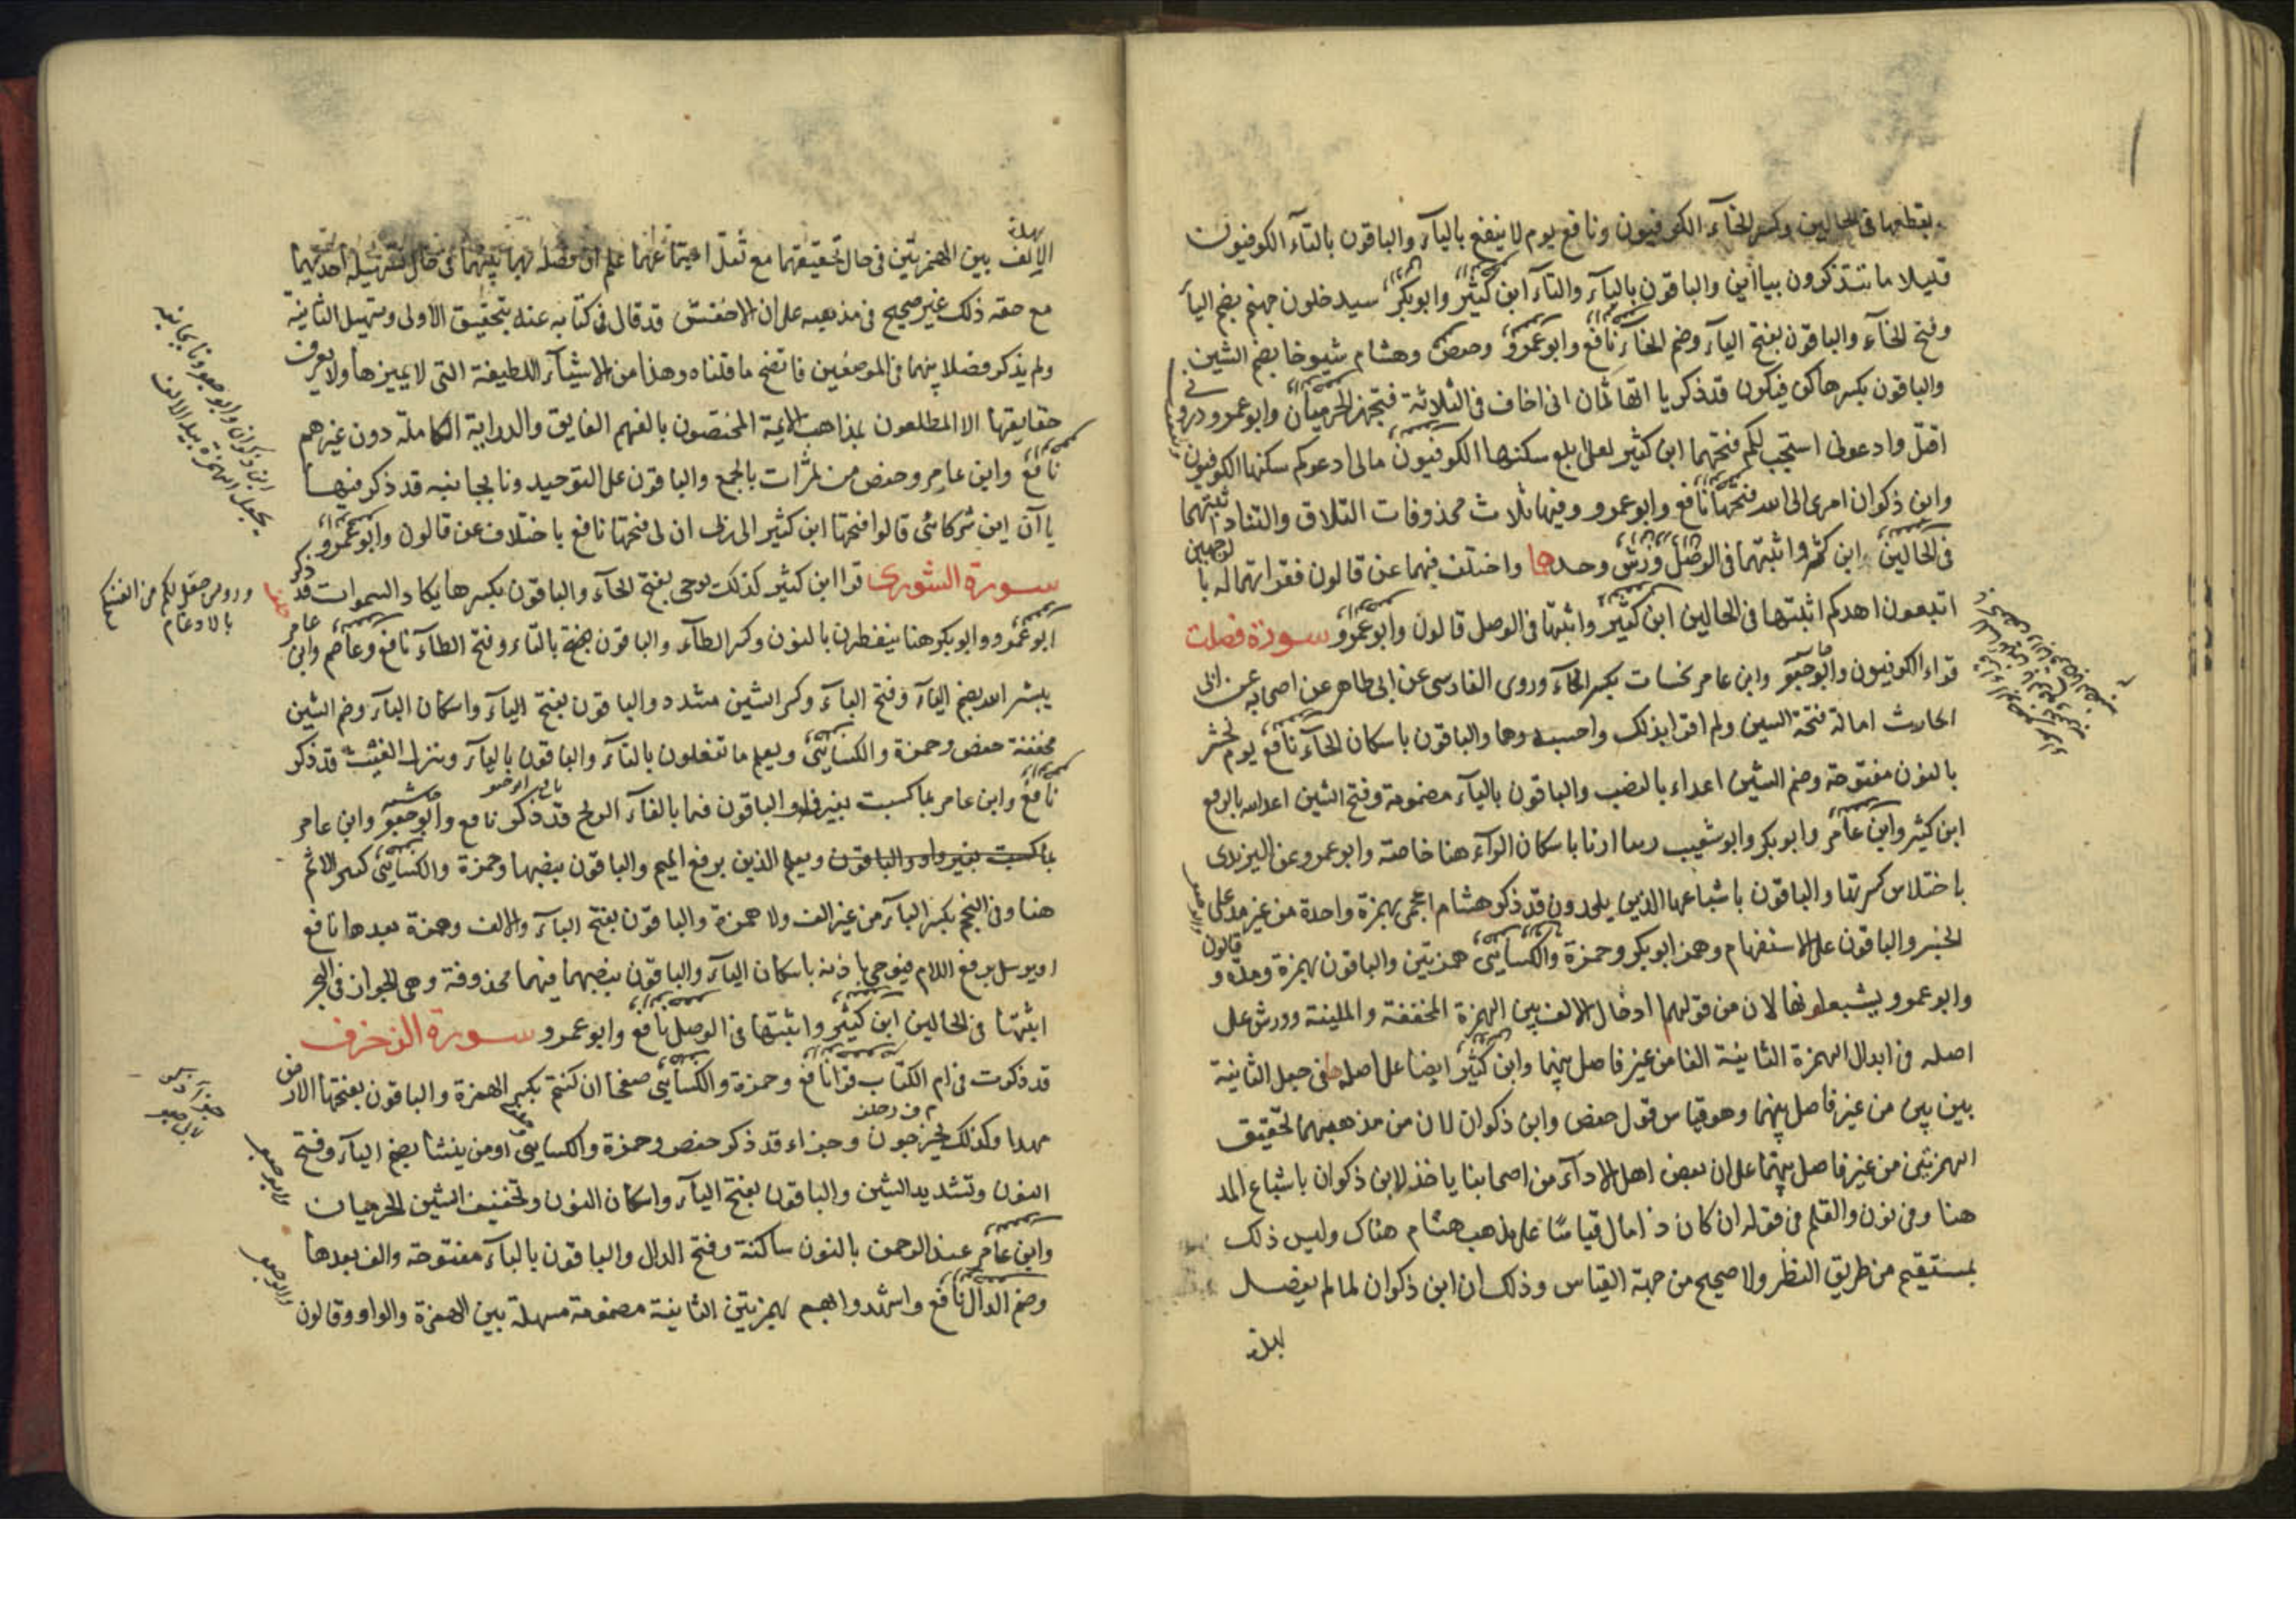 بقطعها فى الحالين وكسر الخآء الكوفيون ونافع يوم لا ينفع باليآء والباقون بالتآء الكوفيون
قليلا ما تتذكرون بتاءين والباقون باليآء والتآء ابن كثير وابوبكر سيدخلون جهنم بضم اليآ
وفتح الخآء والباقون بفتح اليآء وضم الخآء نافع وابوعمرو وحفص وهشام شيوخا بضم الشين
والباقون بكسرها كن فيكون قد ذكر يا اتها ثمان انى اخاف فى الثلاثة فتحهن الحرميان وابوعمرو ذرونى
اقتل وادعونى استجب لكم فتحهما ابن كثير لعلى ابلغ سكنها الكوفيون مالى ادعوكم سكنها الكوفيون
وابن ذكوان امرى الى الله فتحها نافع وابوعمرو وفيها ثلاث محذوفات التلاق والتناد ثبتهما
فى الحالين ابن كثير واثبتهما فى الوصل ورش وحده واختلف فيهما عن قالون فقراتهما له با لوجهين
اتبعون اهدكم اثبتها فى الحالين ابن كثير واثبتها فى الوصل قالون وابوعمرو سورة فصلت
قراء الكوفيون وابوجعفر وابن عامر نحسات بكسر الحآء وروى الفارسى عن ابى طاهر عن اصحابه عن ابى
الحارث امالة فتحة السين ولم اقرا بذلك واحسبه وهما والباقون باسكان الحآء نافع يوم نحشر
بالنون مفتوحة وضم الشين اعداء بالنصب والباقون باليآء مضمومة وفتح الشين اعداء الله بالرفع
ابن كثير وابن عامر وابوبكر وابوشعيب ربنا ارنا باسكان الرآء هنا خاصة وابوعمرو عن اليزيدى
باختلاس كسرتها والباقون باشباعها الذين يلحدون قد ذكر هشام اعجمى بهمزة واحدة من غير مد على
الخبر والباقون على الاستفهام وهمز ابوبكر وحمزة والكسايى همزتين والباقون بهمزة ومدة و قالون
وابوعمرو يشبعونها لان من قولهما ادخال الالف بين الهمزة المخففة والملينة وورش على
اصله فى ابدال الهمزة الثانية الفا من غير فاصل بينهما وابن كثير ايضا على اصله فى جعل الثانية
بين بين من غير فاصل بينهما وهو قياس قول حفص وابن ذكوان لان من مذهبهما تحقيق
الهمزتين من غير فاصل بينهما على ان بعض اهل الادآء من اصحابنا ياخذ لابن ذكوان باشباع المد
هنا وفى نون والقلم فى قوله ان كان ذا مال قياسا على مذهب هشام هناك وليس ذلك
بمستقيم من طريق النظر ولا صحيح من جهة القياس وذلك ان ابن ذكوان لما لم يفصل
بهذه
بهذه
الالف بين الهمزتين فى حال تحقيقهما مع ثقل اجتماعهما علم ان فصله بها بينهما فى حال تسهيله احديهما
مع خفة ذلك غير صحيح فى مذهبه على ان الاخفش قد قال فى كتابه عنه بتحقيق الاولى وتسهيل الثانية
ولم يذكر فصلا بينهما فى الموضعين فاتضح ما قلناه وهذا من الاشيآء اللطيفة التى لا يميزها ولا يعرف
حقايقها الا المطلعون بمذاهب الايمة المختصون بالفهم الفايق والدراية الكاملة دون غيرهم
نافع وابن عامر وحفص من ثمرات بالجمع والباقون على التوحيد ونا بجانبه قد ذكر فيها
ياآن اين شركائى قالوا فتحها ابن كثير الى ربى ان لى فتحها نافع باختلاف عن قالون وابوعمرو
سورة الشورى قرا ابن كثير كذلك يوحى بفتح الحآء والباقون بكسرها يكاد السموات قد ذكر
ابوعمرو وابوبكر هنا ينفطرن بالنون وكسر الطآء والباقون بالتاء وفتح الطآء نافع وعاصم وابن عامر
يبشر الله بضم اليآء وفتح البآء وكسر الشين مشدد والباقون بفتح اليآء واسكان البآء وضم الشين
مخففة حفص وحمزة والكسايى ويعلم ما تفعلون بالتآء والباقون باليآء وينزل الغيث قد ذكر
نافع وابن عامر بما كسبت بغير فا والباقون فبما بالفآء الريح قد ذكر نافع وابوجعفر وابن عامر
بما كسبت بغير واو والباقون ويعلم الذين برفع الميم والباقون بنصبها وحمزة والكسايى كبير الاثم
هنا وفى النجم بكسر البآء من غير الف ولا همزة والباقون بفتح البآء والالف وهمزة بعدها نافع
او يرسل برفع اللام فيوحى باذنه باسكان اليآء والباقون بنصبهما فيها محذوفة وهى الجوار فى البحر
اثبتها فى الحالين ابن كثير واثبتها فى الوصل نافع وابوعمرو سورة الزخرف
قد ذكرت فى ام الكتاب قرا نافع وحمزة والكسايى صفحا ان كنتم بكسر الهمزة والباقون بفتحها الارض
مهدا وكذلك تخرجون وجزاء قد ذكر حفص وحمزة والكسايى اومن ينشا بضم اليآء وفتح
النون وتشديد الشين والباقون بفتح اليآء واسكان النون وتخفيف الشين الحرميان
وابن عامر عند الرحمن بالنون ساكنة وفتح الدال والباقون بالبآء مفتوحة والف بعدها
وضم الدال نافع واشهدوا بهمزتين الثانية مضمومة مسهلة بين الهمزة والواو وقالون
ابن ذكوان وابوجعفر ونا بجانبه
بجعل الهمزة بعد الالف
بالادغام
وابوجعفر
وابوجعفر